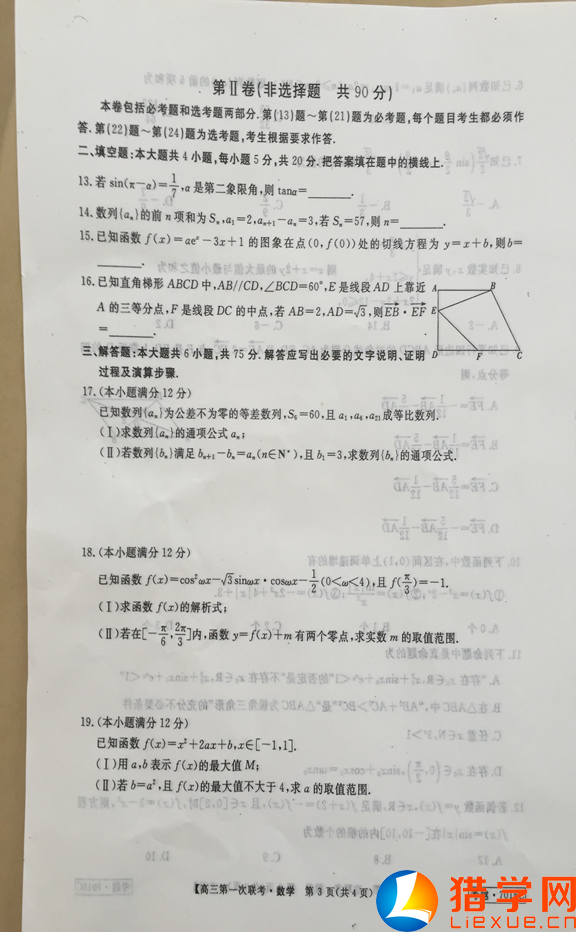 第Ⅱ卷(非选择题 共90分)
本卷包括必考题和选考题两部分.第(13)题~第(21)题为必考题,每个题目考生都必须作
答.第(22)题~第(24)题为选考题,考生根据要求作答.
二、填空题:本大题共4小题,每小题5分,共20分.把答案填在题中的横线上.
13.若sin(π-α)=1/7,α是第二象限角,则tanα=________.
14.数列{aₙ}的前n项和为Sₙ,a₁=2,aₙ₊₁-aₙ=3,若Sₙ=57,则n=________.
15.已知函数f(x)=aeˣ-3x+1的图象在点(0,f(0))处的切线方程为y=x+b,则b=
________.
16.已知直角梯形ABCD中,AB//CD,∠BCD=60°,E是线段AD上靠近
A的三等分点,F是线段DC的中点,若AB=2,AD=√3,则EB·EF
=________.
A B
E
D F C
三、解答题:本大题共6小题,共75分.解答应写出必要的文字说明、证明
过程及演算步骤.
17.(本小题满分12分)
已知数列{aₙ}为公差不为零的等差数列,S₆=60,且a₁,a₆,a₂₁成等比数列.
(Ⅰ)求数列{aₙ}的通项公式aₙ;
(Ⅱ)若数列{bₙ}满足bₙ₊₁-bₙ=aₙ(n∈N*),且b₁=3,求数列{bₙ}的通项公式.
18.(本小题满分12分)
已知函数f(x)=cos²ωx-√3sinωx·cosωx-1/2(0<ω<4),且f(π/3)=-1.
(Ⅰ)求函数f(x)的解析式;
(Ⅱ)若在[-π/6,2π/3]内,函数y=f(x)+m有两个零点,求实数m的取值范围.
19.(本小题满分12分)
已知函数f(x)=x²+2ax+b,x∈[-1,1].
(Ⅰ)用a,b表示f(x)的最大值M;
(Ⅱ)若b=a²,且f(x)的最大值不大于4,求a的取值范围.
【高三第一次联考·数学 第3页(共4页)
猎学网
LIEXUE.CN